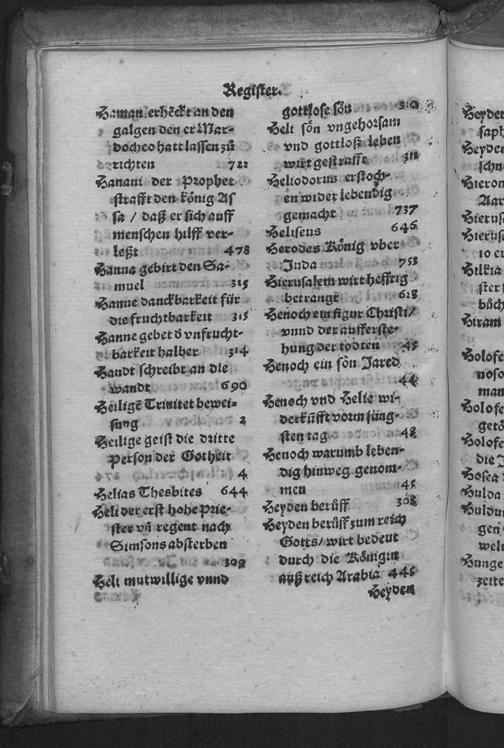 Register.
Haman erhēckt an den
galgen den er Mar-
docheo hatt lassen zů
richten 721
Hanani der Prophet
strafft den könig As
sa / daß er sich auff
menschen hilff ver-
leßt 478
Hanna gebirt den Sa-
muel 315
Hanne danckbarkeit für
die fruchtbarkeit 315
Hanne gebet ð vnfrucht-
barkeit halber 314
Handt schreibt an die
wandt 690
Heiligē Trinitet bewei-
sung 2
Heilige geist die dritte
Person der Gotheit
4
Helias Thesbites 644
Heli der erst hohe Prie-
ster vñ regent nach
Simsons absterben
309
Heli mutwillige vnnd
gottlose sön 310
Heli sön vngehorsam
vnd gottloß leben
wirt gestrafft 311
Heliodorus erstoch-
en wider lebendig
gemacht 737
Heliseus 646
Herodes König vber
Juda 758
Hierusalem wirt hefftig
betrangt 628
Henoch ein figur Christi/
vnnd der aufferste-
hung der todten 45
Henoch ein sön Jared
44
Henoch vnd Helie wi-
derkůfft vorm jüng-
sten tag 48
Henoch warumb leben-
dig hinweg genom-
men 45
Heyden berůff 308
Heyden berůff zum reich
Gotts/ wirt bedeut
durch die Königin
auß reich Arabia 445
Heyden
Heyden
saph
Heyden
schn
Hieron
Aar
Hierus
Hierus
10 er
Hilkia
ster
bůch
Hiram
Holofe
noso
man
Holofe
getö
Holofe
die J
Hosea
Hulda
Huldun
gen
welt
Hunge
zeite